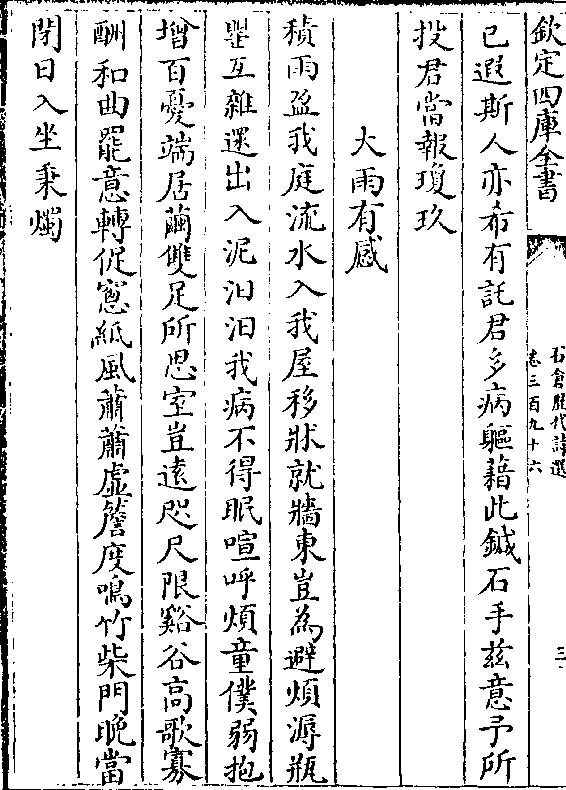 欽定四庫全書
石倉歷代詩選
卷三百九十六
三
已遐斯人亦希有託君多病軀藉此鍼石手兹意予所
投君當報瓊玖
大雨有感
積雨盈我庭流水入我屋移牀就牆東豈為避煩溽瓶
罌互雜遝出入泥汩汩我病不得眠喧呼煩童僕弱抱
増百憂端居繭雙足所思室豈遠咫尺限谿谷高歌寡
酬和曲罷意轉促窻紙風蕭蕭虛簷度鳴竹柴門晚當
閉日入坐秉燭